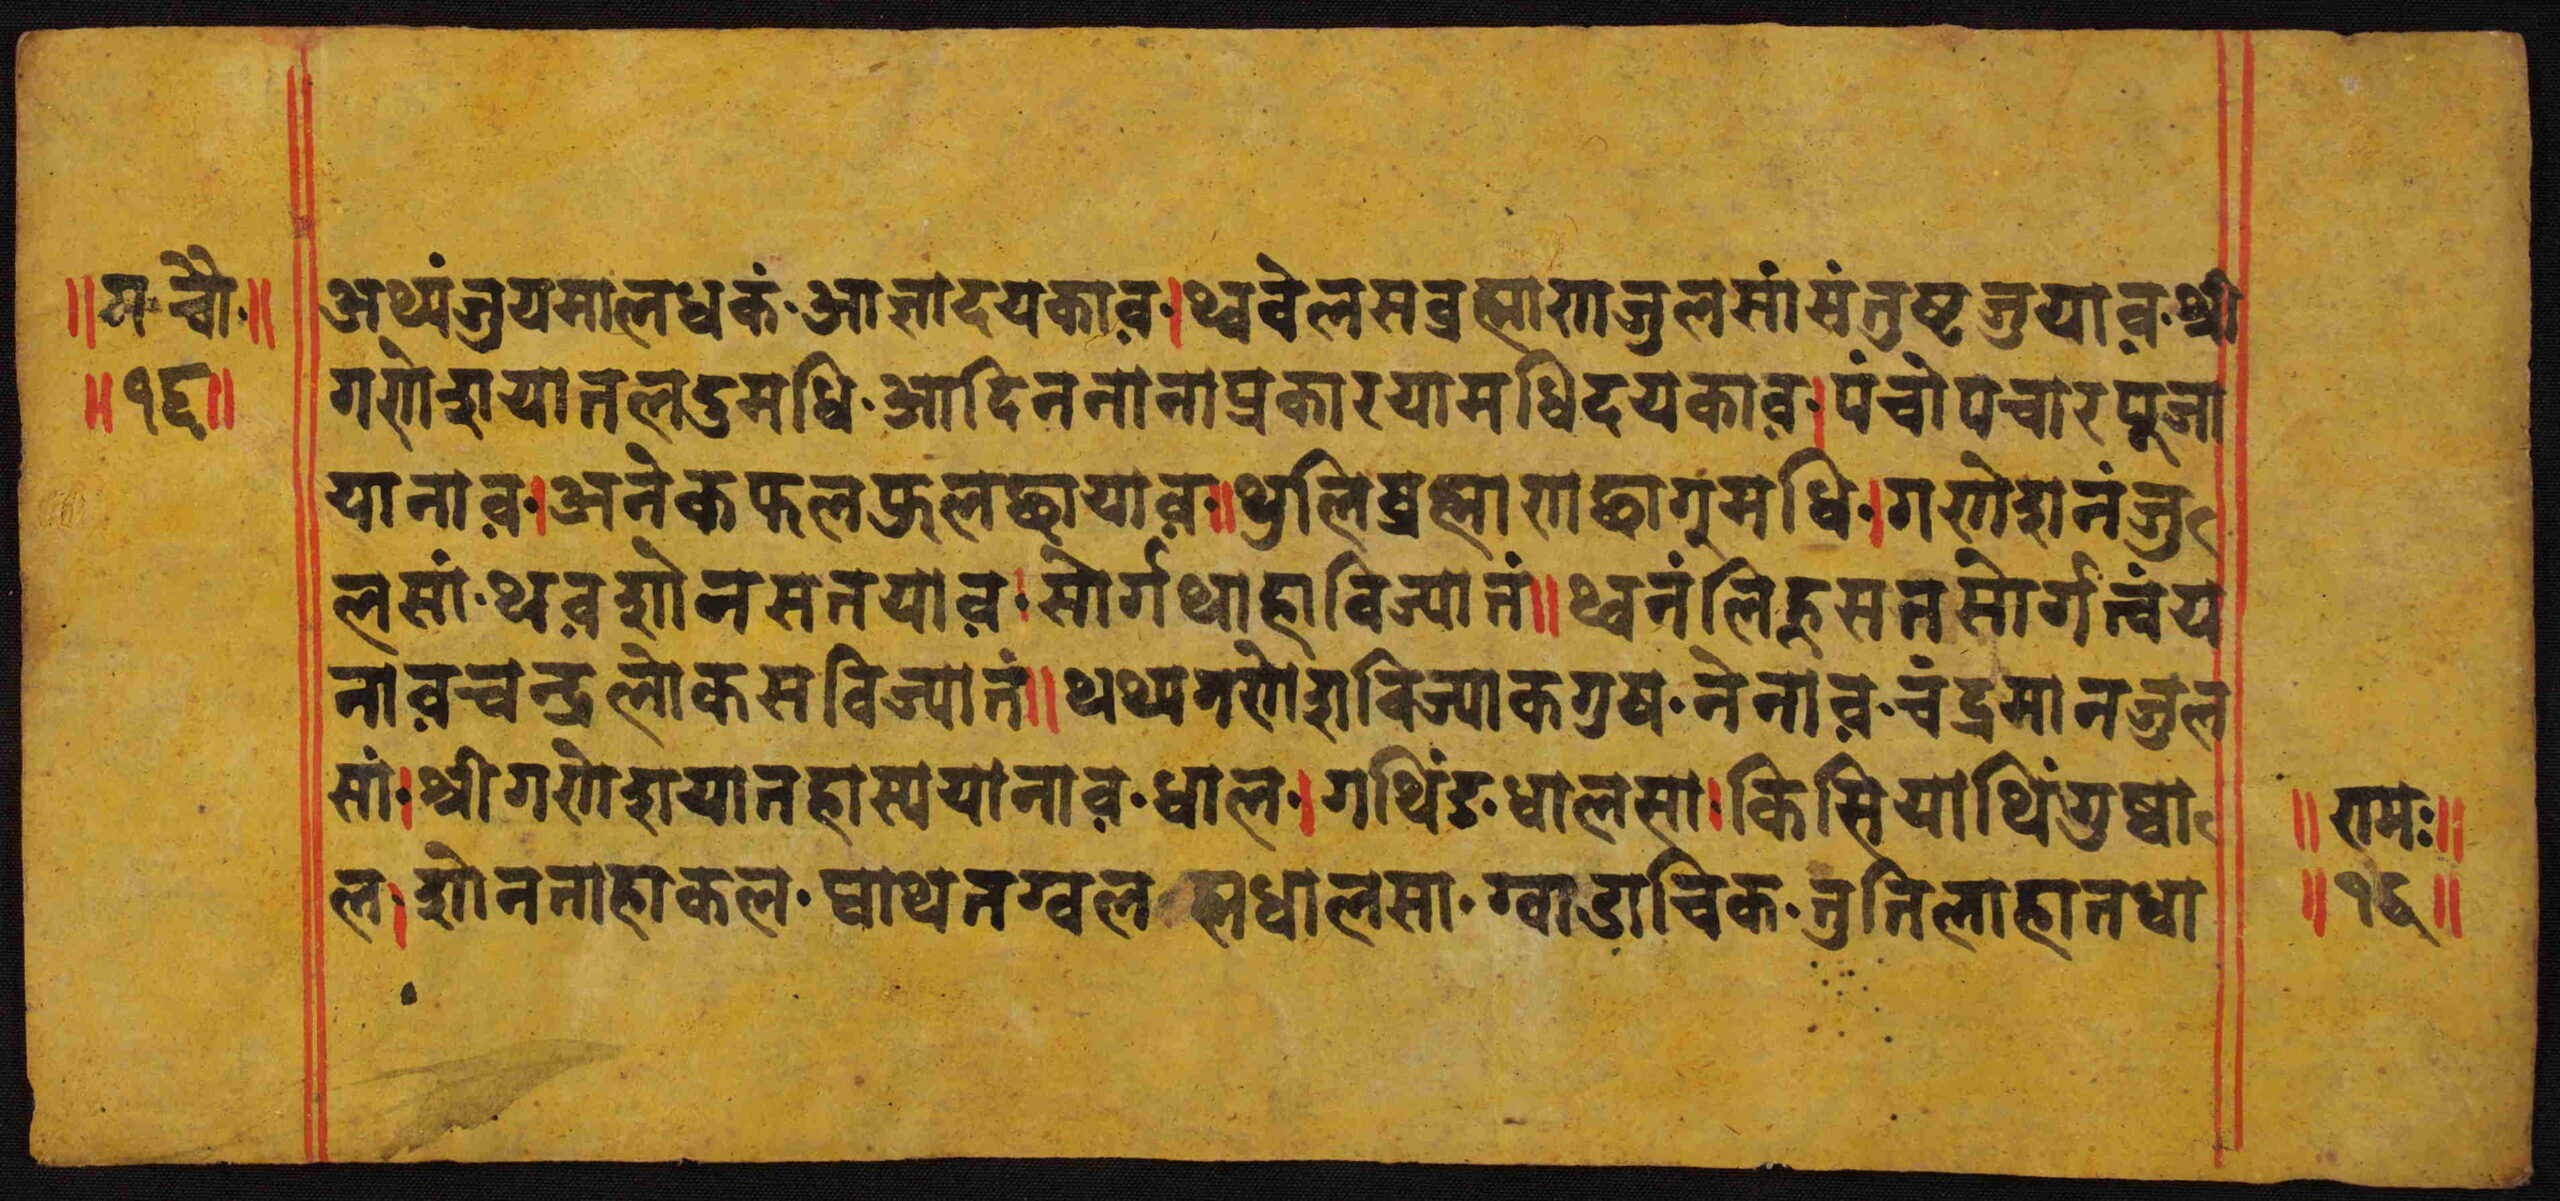 ॥ग·चौ·॥
॥१६॥
अथ्यंजुयमालधकं·आज्ञादयकाव़·।थ्ववेलसव्रह्माणजुलसांसंतुष्टजुयाव़·श्री
गणेशयातलडुमधि·आदिननानाप्रकारयामधिदयकाव़·।पंचोपचारपूजा
यानाव़·।अनेकफलफूलछायाव़·॥थुलिव्रह्माणछागुमधि·।गणेशनंजु
लसां·थव़शोनसतयाव़·।सोर्गथाहाविज्यातं॥थ्वनंलिहूसतसोर्गत्वंय
नाव़चन्द्रलोकसविज्यातं॥थथ्यगणेशविज्याकगुष·नेनाव़·चंद्रमानजुल
सां·।श्रीगणेशयातहास्ययानाव़·धाल·।गथिंङ·धालसा।किसियाथिंगुष्वा
ल·।शोननाहाकल·घाथतग्वल ह्मधालसा·ग्वाडाचिक·तुतिलाहातधा
॥रामः॥
॥१६॥